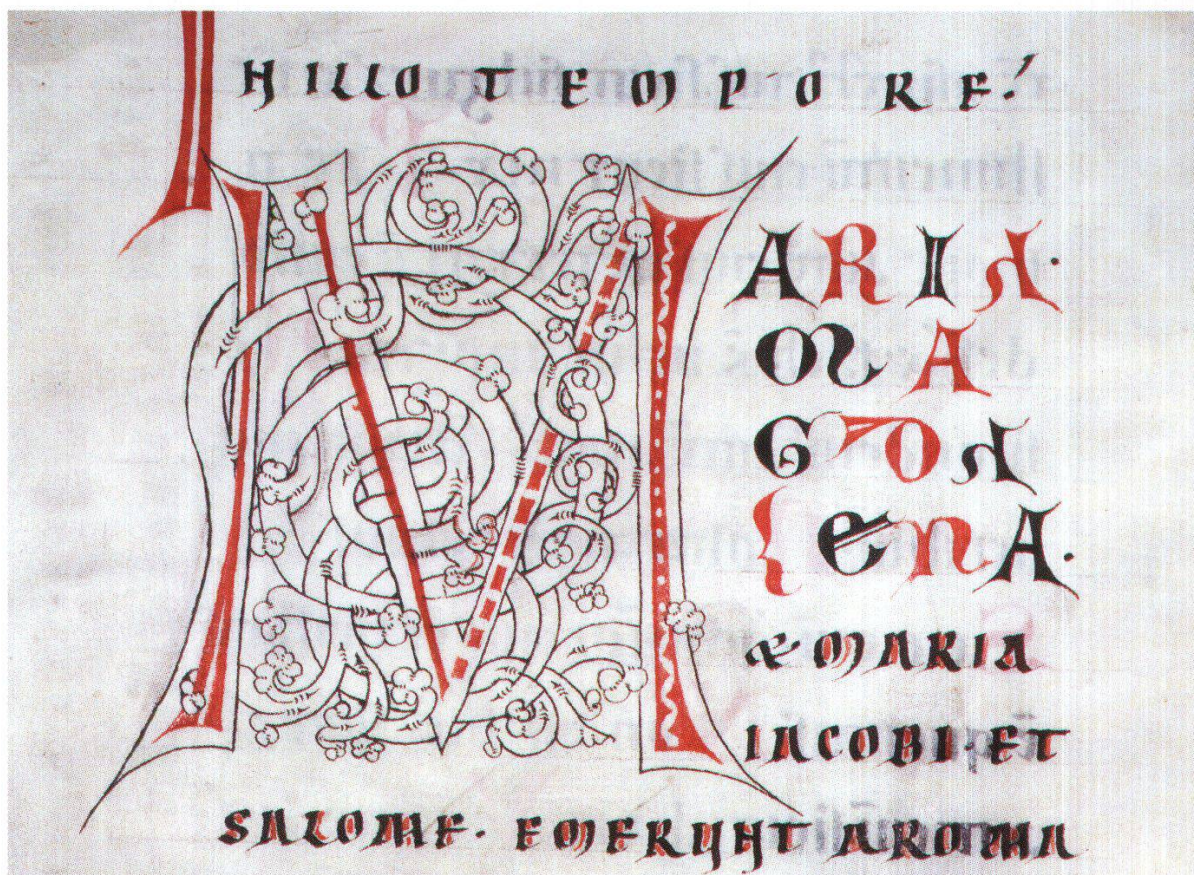 IN ILLO TEMPORE!
MARIA.
MA
GDA
LENA.
& MARIA
IACOBI. ET
SALOME. EMERUNT AROMA